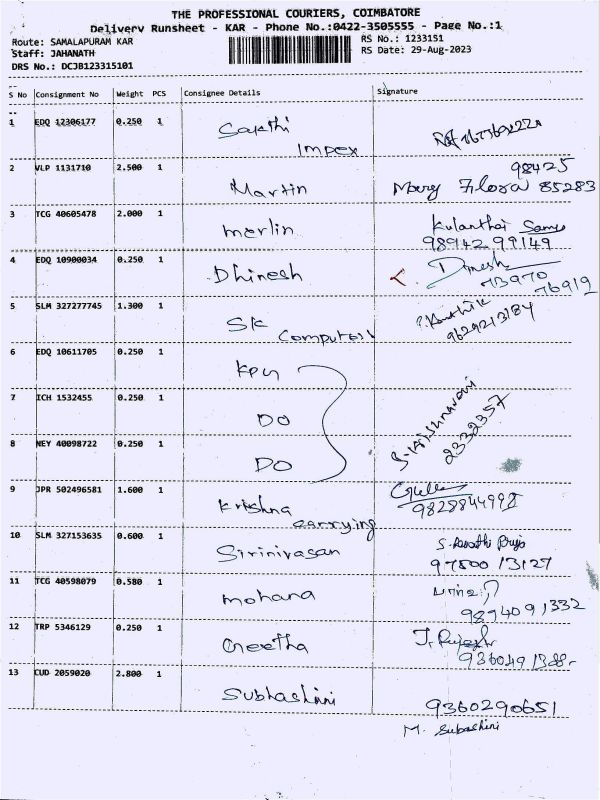 THE PROFESSIONAL COURIERS, COIMBATORE
Delivery Runsheet - KAR - Phone No.:0422-3505555 - Page No.:1
Route: SAMALAPURAM KAR
RS No.: 1233151
Staff: JAHANATH
RS Date: 29-Aug-2023
DRS No.: DCJB123315101
S No Consignment No Weight PCS Consignee Details Signature
1 EDQ 12306177 0.250 1 Sakthi
Impex
98425
2 VLP 1131710 2.500 1 Martin Mary Flora 85283
3 TCG 40605478 2.000 1 merlin Kulanthai Samy
98942 99149
4 EDQ 10900034 0.250 1 Dhinesh Dinesh
73970
76919
5 SLM 327277745 1.300 1 SK
Computers
9629213184
6 EDQ 10611705 0.250 1 KPN
7 ICH 1532455 0.250 1 DO
2332357
8 NEY 40098722 0.250 1 DO
9 JPR 502496581 1.600 1 Krishna
carrying
9828844998
10 SLM 327153635 0.600 1 Sirinivasan
97500 13127
11 TCG 40598079 0.580 1 mohana
98940 91332
12 TRP 5346129 0.250 1 Geetha J. Rajesh
13 CUD 2059020 2.800 1 Subhashini
9360290651
M. Subashini